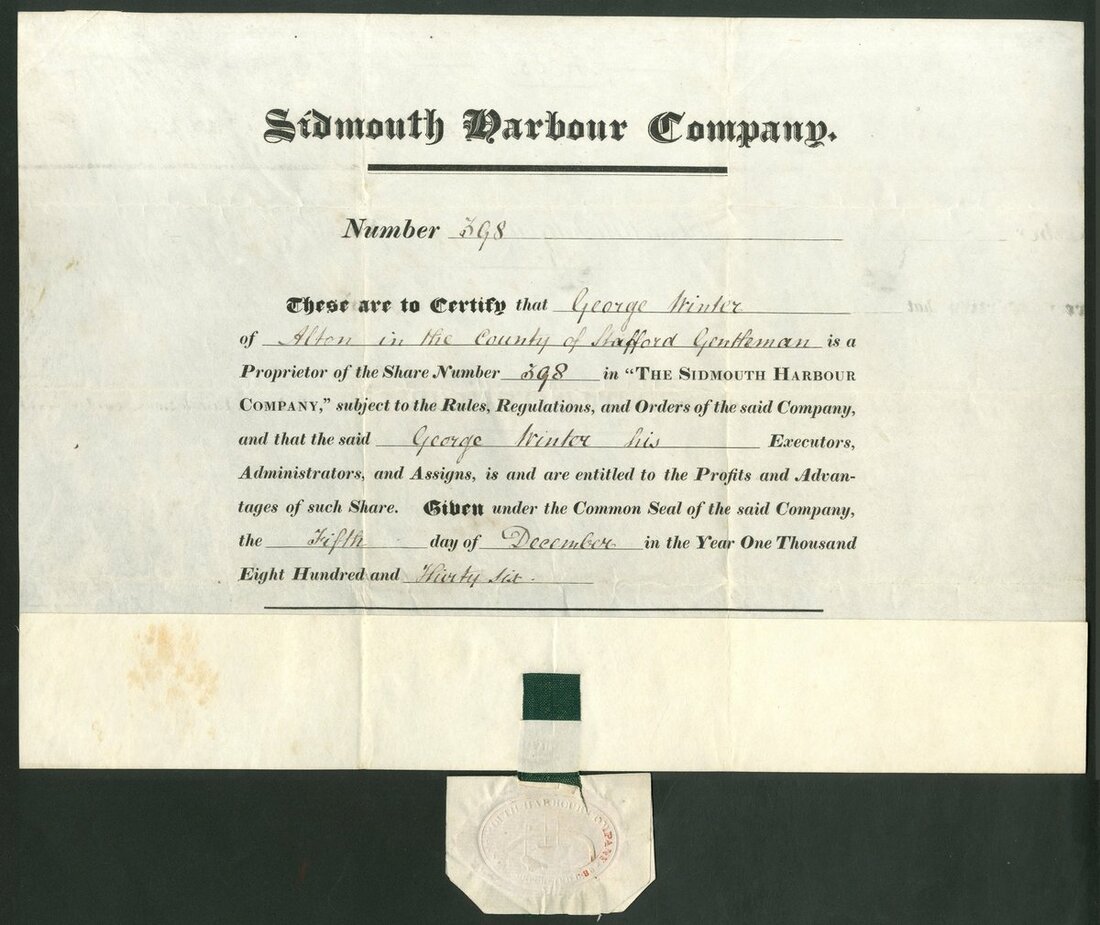 Sidmouth Harbour Company.
Number 398
These are to Certify that George Winter
of Alton in the County of Stafford Gentleman is a
Proprietor of the Share Number 398 in "THE SIDMOUTH HARBOUR
COMPANY," subject to the Rules, Regulations, and Orders of the said Company,
and that the said George Winter his Executors,
Administrators, and Assigns, is and are entitled to the Profits and Advan-
tages of such Share. Given under the Common Seal of the said Company,
the Fifth day of December in the Year One Thousand
Eight Hundred and Thirty Six.
HARBOUR COMPANY